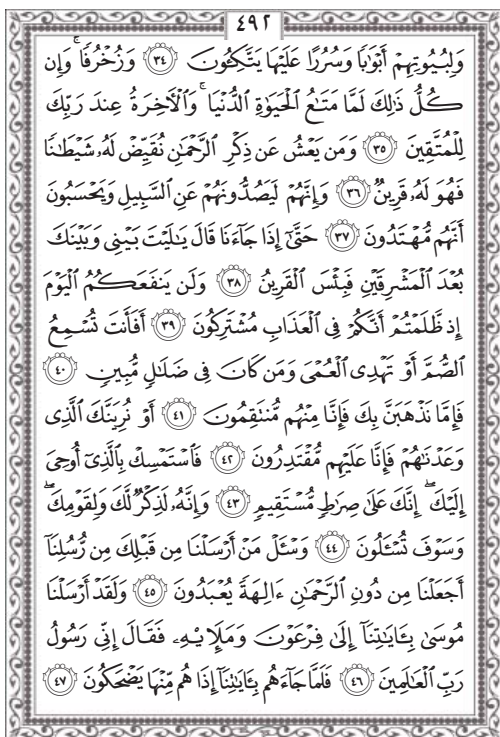 ٤٩٢
وَلِبُيُوتِهِمْ أَبْوَٰبًا وَسُرُرًا عَلَيْهَا يَتَّكِـُٔونَ ﴿٣٤﴾ وَزُخْرُفًا ۚ وَإِن
كُلُّ ذَٰلِكَ لَمَّا مَتَـٰعُ ٱلْحَيَوٰةِ ٱلدُّنْيَا ۚ وَٱلْـَٔاخِرَةُ عِندَ رَبِّكَ
لِلْمُتَّقِينَ ﴿٣٥﴾ وَمَن يَعْشُ عَن ذِكْرِ ٱلرَّحْمَـٰنِ نُقَيِّضْ لَهُۥ شَيْطَـٰنًا
فَهُوَ لَهُۥ قَرِينٌ ﴿٣٦﴾ وَإِنَّهُمْ لَيَصُدُّونَهُمْ عَنِ ٱلسَّبِيلِ وَيَحْسَبُونَ
أَنَّهُم مُّهْتَدُونَ ﴿٣٧﴾ حَتَّىٰٓ إِذَا جَآءَنَا قَالَ يَـٰلَيْتَ بَيْنِى وَبَيْنَكَ
بُعْدَ ٱلْمَشْرِقَيْنِ فَبِئْسَ ٱلْقَرِينُ ﴿٣٨﴾ وَلَن يَنفَعَكُمُ ٱلْيَوْمَ
إِذ ظَّلَمْتُمْ أَنَّكُمْ فِى ٱلْعَذَابِ مُشْتَرِكُونَ ﴿٣٩﴾ أَفَأَنتَ تُسْمِعُ
ٱلصُّمَّ أَوْ تَهْدِى ٱلْعُمْىَ وَمَن كَانَ فِى ضَلَـٰلٍ مُّبِينٍ ﴿٤٠﴾
فَإِمَّا نَذْهَبَنَّ بِكَ فَإِنَّا مِنْهُم مُّنتَقِمُونَ ﴿٤١﴾ أَوْ نُرِيَنَّكَ ٱلَّذِى
وَعَدْنَـٰهُمْ فَإِنَّا عَلَيْهِم مُّقْتَدِرُونَ ﴿٤٢﴾ فَٱسْتَمْسِكْ بِٱلَّذِىٓ أُوحِىَ
إِلَيْكَ ۖ إِنَّكَ عَلَىٰ صِرَٰطٍ مُّسْتَقِيمٍ ﴿٤٣﴾ وَإِنَّهُۥ لَذِكْرٌ لَّكَ وَلِقَوْمِكَ ۖ
وَسَوْفَ تُسْـَٔلُونَ ﴿٤٤﴾ وَسْـَٔلْ مَنْ أَرْسَلْنَا مِن قَبْلِكَ مِن رُّسُلِنَآ
أَجَعَلْنَا مِن دُونِ ٱلرَّحْمَـٰنِ ءَالِهَةً يُعْبَدُونَ ﴿٤٥﴾ وَلَقَدْ أَرْسَلْنَا
مُوسَىٰ بِـَٔايَـٰتِنَآ إِلَىٰ فِرْعَوْنَ وَمَلَإِي۟هِۦ فَقَالَ إِنِّى رَسُولُ
رَبِّ ٱلْعَـٰلَمِينَ ﴿٤٦﴾ فَلَمَّا جَآءَهُم بِـَٔايَـٰتِنَآ إِذَا هُم مِّنْهَا يَضْحَكُونَ ﴿٤٧﴾